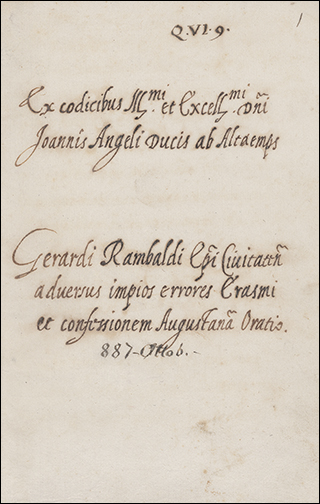 Q. VI. 9.
1
Ex codicibus Ill.mi et Excell.mi Dñi
Joannis Angeli Ducis ab Altaemps
Gerardi Rambaldi Epi Ciuitateñ
aduersus impios errores Erasmi
et confessionem Augustanã Oratio.
887-Ottob.-